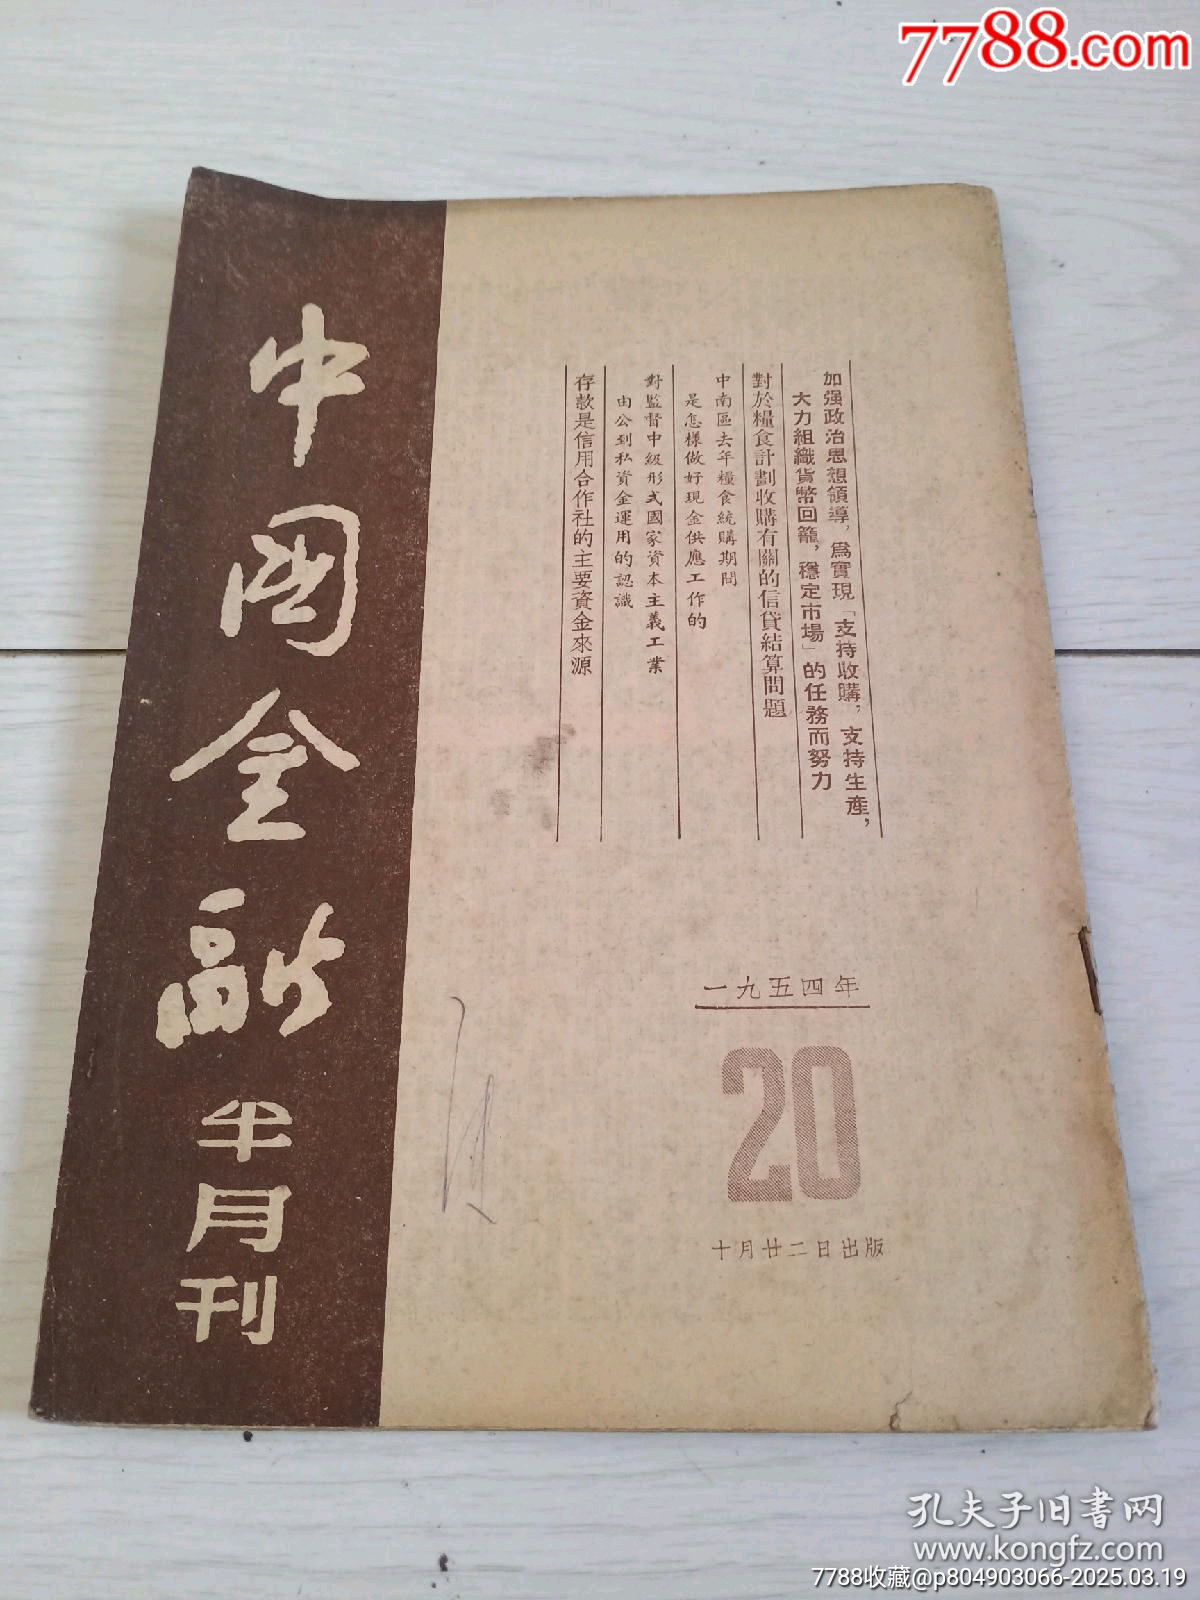 7788.com
中國金融
半月刊
加强政治思想領導，爲實現「支持收購，支持生產，
大力組織貨幣回籠，穩定市場」的任務而努力
對於糧食計劃收購有關的信貸結算問題
中南區去年糧食統購期間
是怎樣做好現金供應工作的
對監督中級形式國家資本主義工業
由公到私資金運用的認識
存款是信用合作社的主要資金來源
一九五四年
20
十月廿二日出版
孔夫子旧书网
www.kongfz.com
7788收藏@p804903066-2025.03.19